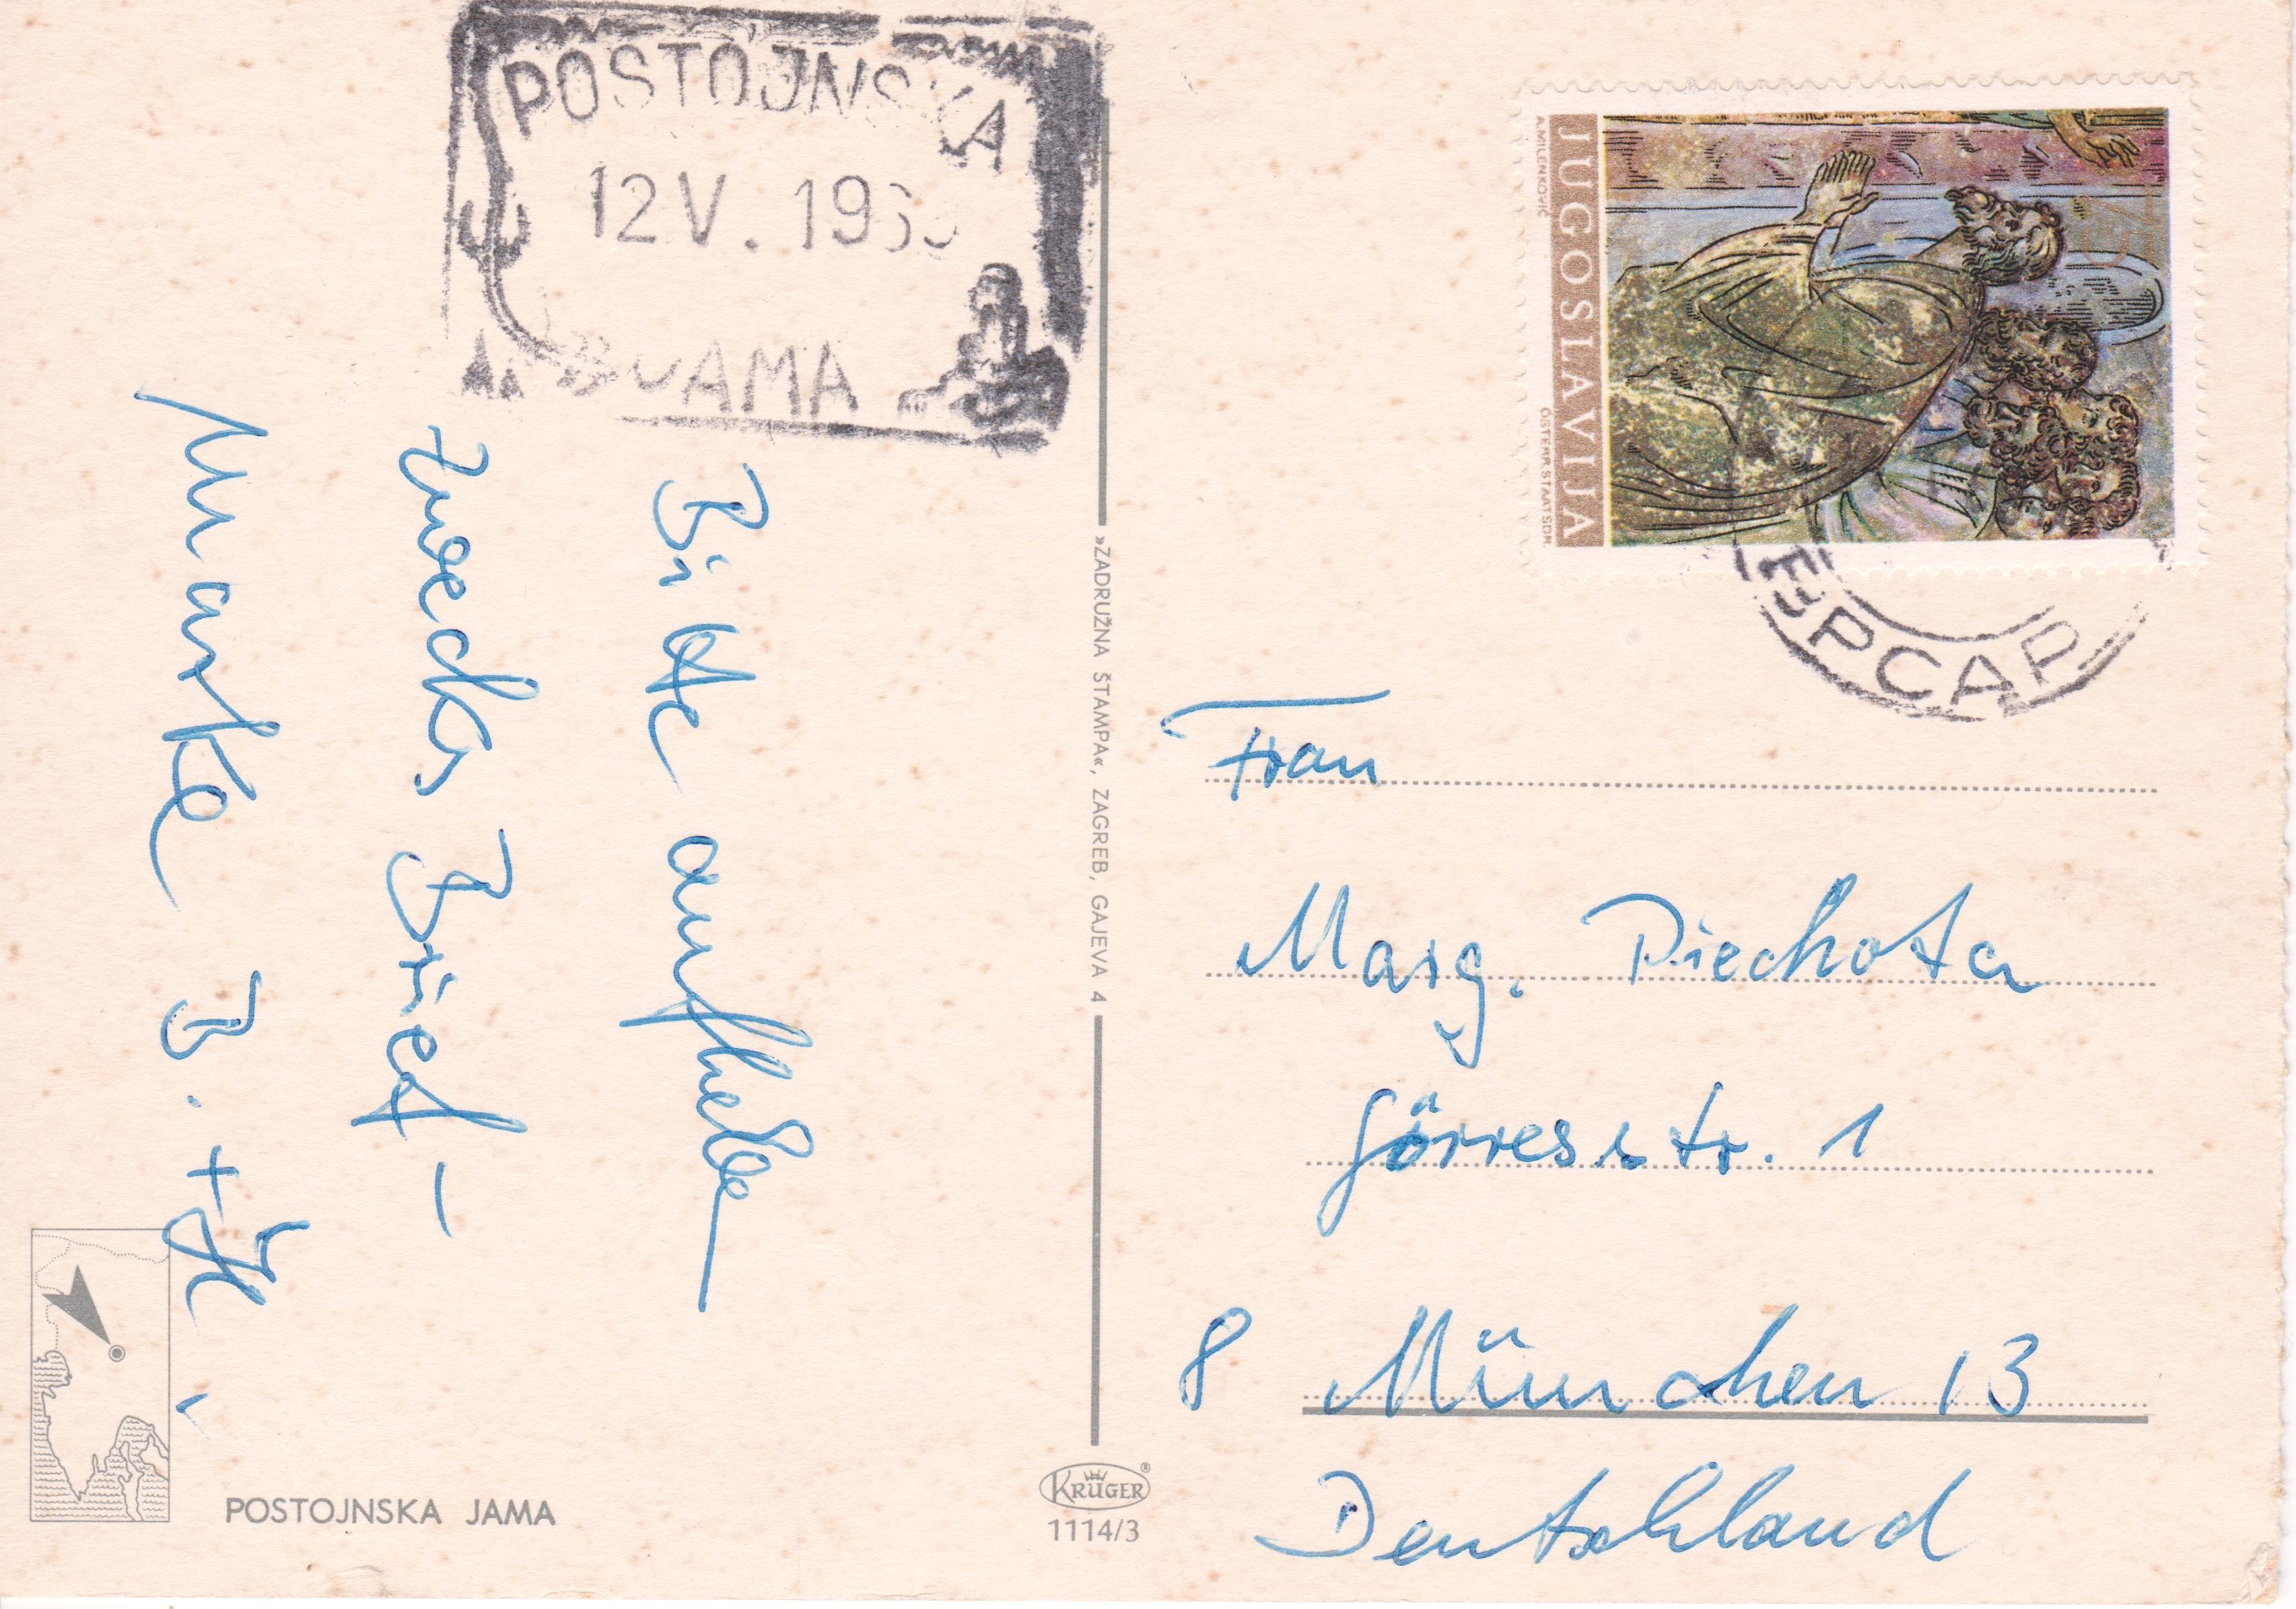 POSTOJNSKA
12 V. 196
JAMA
Bitte aufheben
zwecks Brief-
Marke B. +
»ZADRUŽNA ŠTAMPA«, ZAGREB, GAJEVA 4
JUGOSLAVIJA
A.MILENKOVIĆ
ÖSTERR.STAATSDR.
Frau
Marg. Piechota
Görresstr. 1
8 München 13
Deutschland
POSTOJNSKA JAMA
KRÜGER®
1114/3